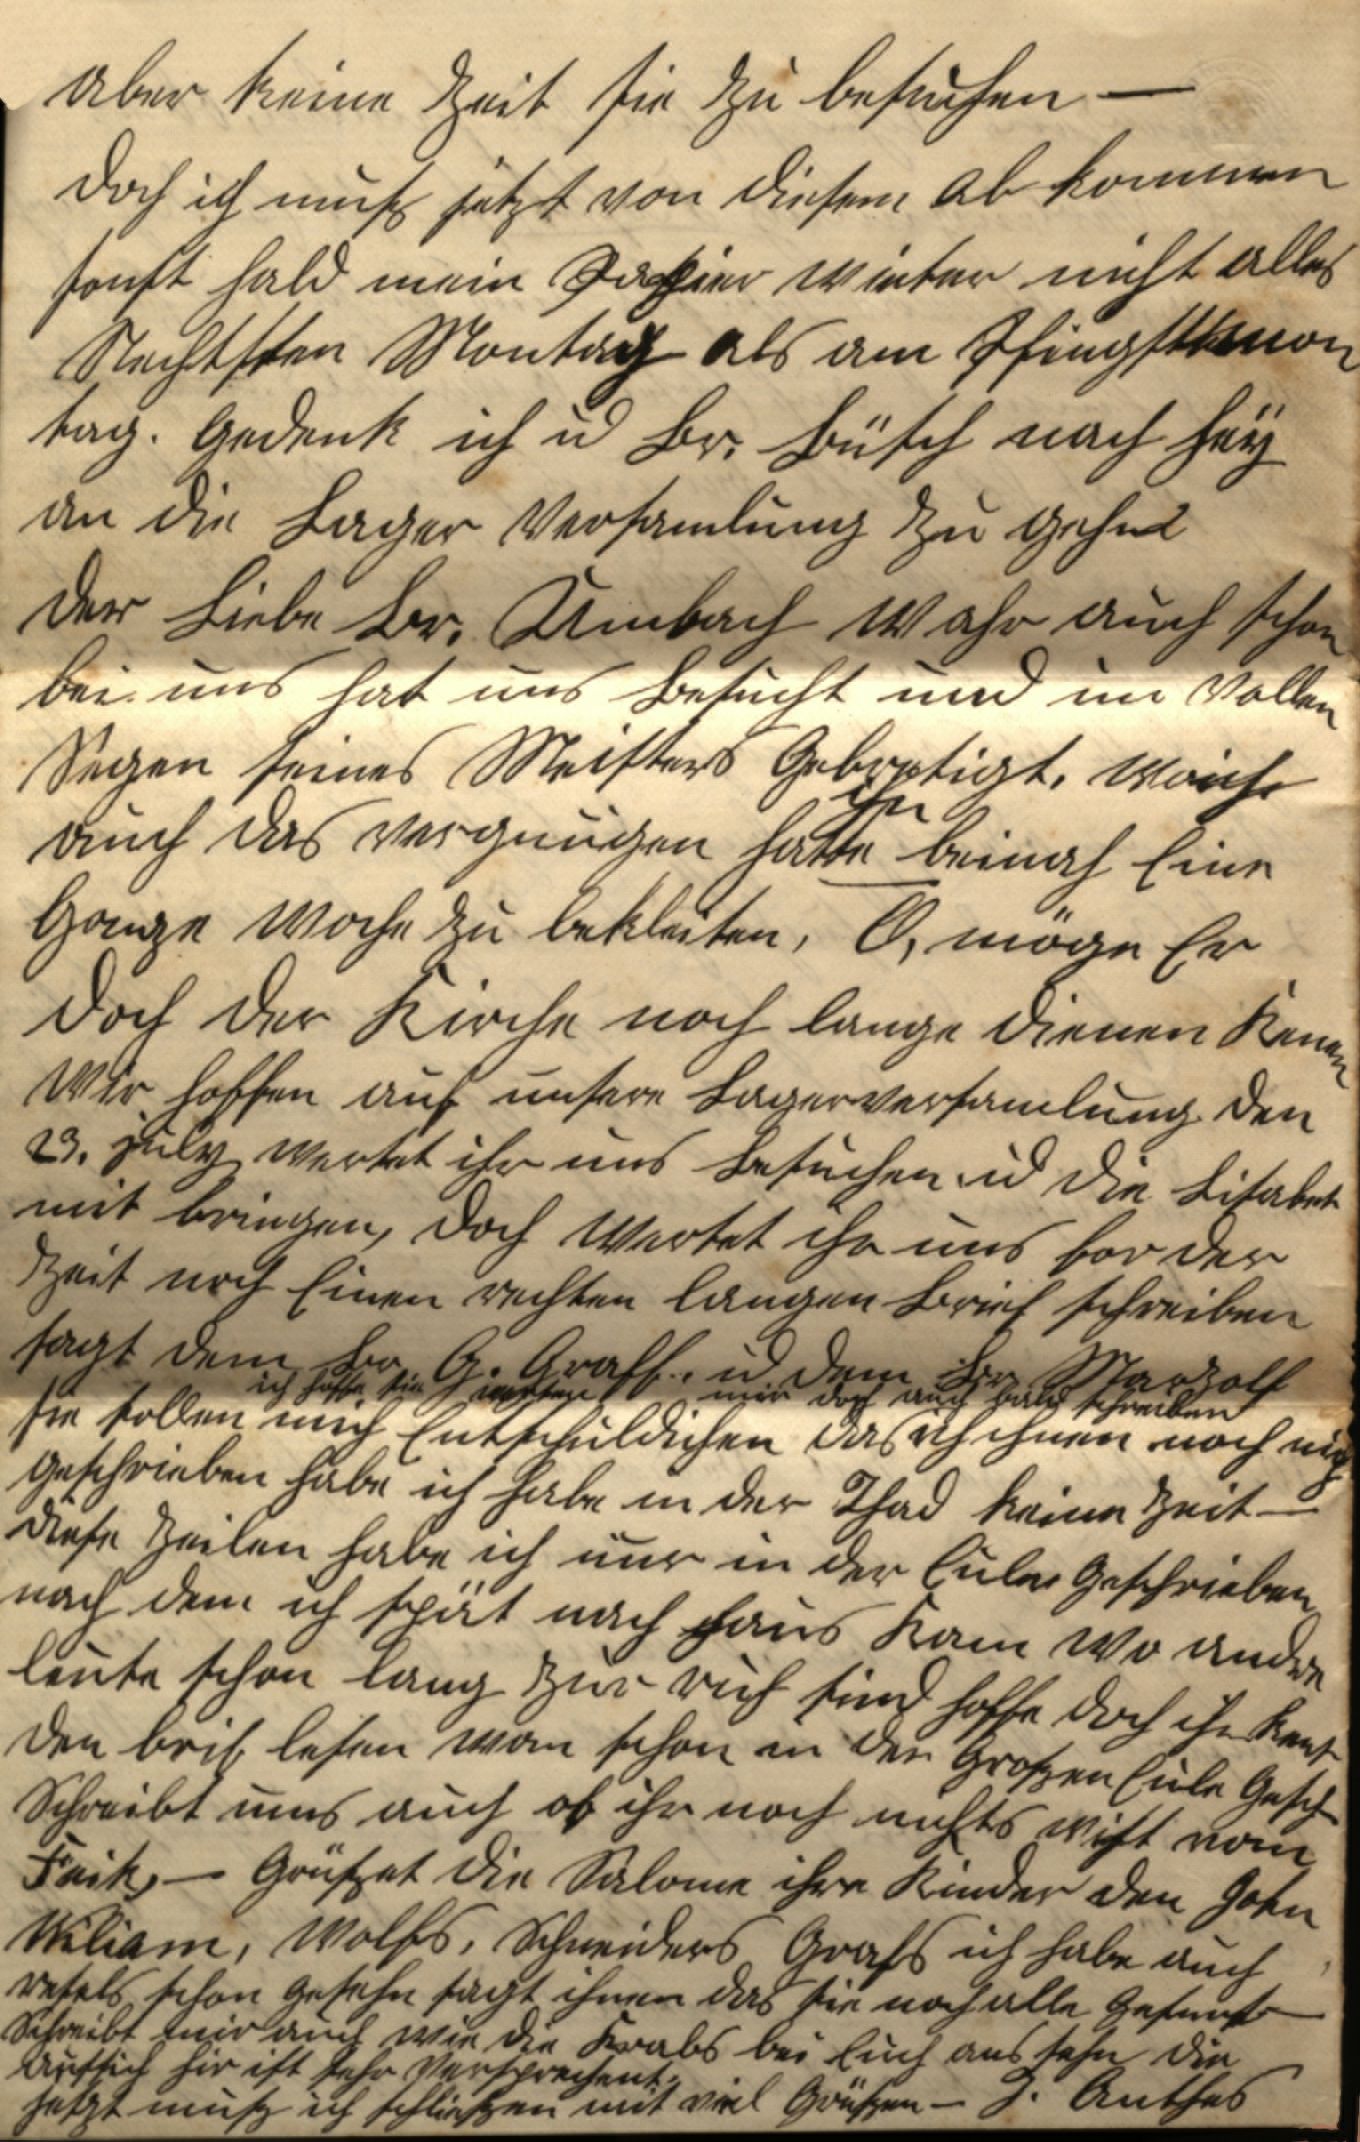 aber keine Zeit sie zu besuchen —
doch ich muß jetzt von diesem ab kommen
sonst hald mein Papier winter nicht alles
Nechtsten Montag als am Pfingstmon
tag. Gedenk ich u Br. Büsch nach Hay
an die Lager Versamlung zu gehn
der Liebe Br. Umbach Wahr auch schon
bei uns hat uns Besucht und im Vollen
Segen seines Meisters Gebretigt. Wo ich
ihn
auch das vergnügen hatte beinah Eine
Ganze Woche zu bekleiten, O, möge Er
doch der Kirche noch lange dienen Kenen
Wir hoffen auf unsere Lagerversamlung den
23. July wertet ihr uns Besuchen u die Lisabet
mit bringen, doch Wertet ihr uns for der
Zeit noch Einen rechten langen Brief schreiben
sagt dem Br. G. Graff. u dem Br Marzolf
ich hoffe sie werten mir doch auch bald schreiben
sie sollen mich Entschuldichen das ich ihnen noch nicht
geschrieben habe ich habe in der Thad keine Zeit —
diese Zeilen habe ich nur in der Eule Geschrieben
nach dem ich spät nach Haus Kam Wo andre
leute schon lang zur ruh sind hoffe doch ihr kent
den brif lesen wan schon in der Großen Eile Gesch
Schreibt uns auch ob ihr noch nichts wist vom
Faik, — Grüßet die Salome ihre Kinder den John
Wiliam, Wolfs, Schneiders Grafs ich habe auch
schon gesehn sagt ihnen das sie noch alle Gesunt —
Schreibt mir auch wie die Krabs bei Euch aus sehn die
aussich hir ist sehr Versprechent.
jetzt muß ich schließen mit viel Grüßen — J. Anthes